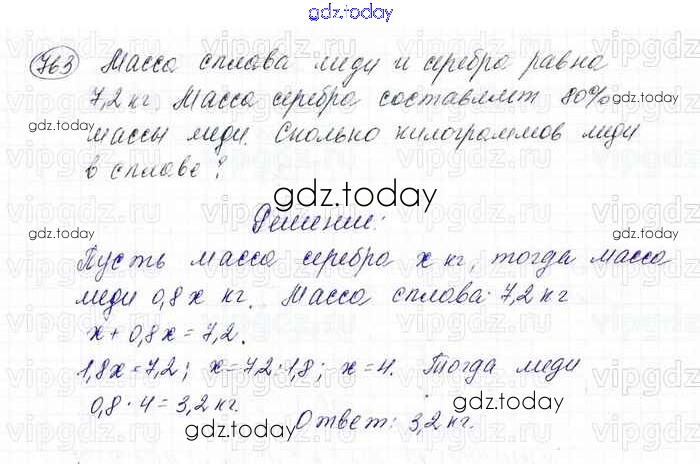 gdz.today
763 Масса сплава меди и серебра равна
7,2 кг. Масса серебра составляет 80%
gdz.today gdz.today
массы меди. Сколько килограммов меди
в сплаве?
gdz.today
Решение:
gdz.today gdz.today
Пусть масса серебра x кг, тогда масса
меди 0,8x кг. Масса сплава 7,2 кг
x + 0,8x = 7,2.
gdz.today gdz.today
1,8x = 7,2; x = 7,2 : 1,8; x = 4. Тогда меди
0,8 · 4 = 3,2 кг.
Ответ: 3,2 кг.
gdz.today gdz.today
gdz.today